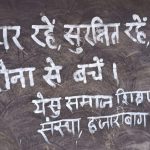 घर रहें, सुरक्षित रहें,
रोना से बचें।
येसु समाज शिक्षण
संस्था, हजारीबाग